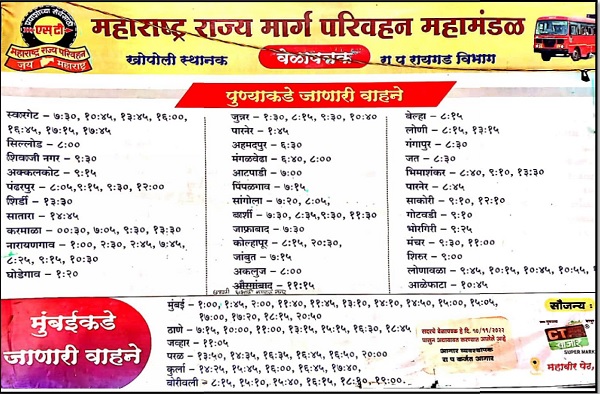 महाराष्ट्र राज्य मार्ग परिवहन महामंडळ
एसटी
महाराष्ट्र राज्य परिवहन
जय महाराष्ट्र
खोपोली स्थानक
वेळापत्रक
रा प रायगड विभाग
पुण्याकडे जाणारी वाहने
स्वारगेट - ७:३०, १०:४५, १३:४५, १६:००,
१६:४५, १७:१५, १७:४५
सिल्लोड - ८:००
शिवाजी नगर - ९:३०
अक्कलकोट - ९:१५
पंढरपूर - ८:०५,९:१५, ९:३०, १२:००
शिर्डी - १३:३०
सातारा - १४:४५
करमाळा - ००:३०, ७:०५, ९:३०, १३:३०
नारायणगाव - १:००, २:३०, २:४५, ७:४५,
८:२५, ९:१५, १०:३०
घोडेगाव - १:२०
जुन्नर - १:३०, ८:१५, ९:३०, १०:४०
पारनेर - १:४५
अहमदपुर - ६:३०
मंगळवेढा - ६:४०, ८:००
आटपाडी - ७:००
पिंपळगाव - ७:१५
सांगोला - ७:२०, ८:०५,
बार्शी - ७:३०, ८:३५,९:३०, ११:३०
जाफ्राबाद - ७:३०
कोल्हापूर - ८:१५, २०:३०,
जांबुत - ७:१५
अकलुज - ८:००
औरंगाबाद - ११:१५
बेल्हा - ८:१५
लोणी - ८:१५, १३:१५
गंगापुर - ८:३०
जत - ८:३०
भिमाशंकर - ८:४०, ९:१०, १३:३०
पारनेर - ८:४५
साकोरी - ९:१०, १२:१०
गोटवडी - ९:१०
भोरगिरी - ९:२५
मंचर - ९:३०, ११:००
शिरुर - ९:००
लोणावळा - ९:४५, १०:१५, १०:४५, १०:५५,
आळेफाटा - १०:४५
मुंबईकडे
जाणारी वाहने
मुंबई - १:००, १:४५, २:००, ११:४०, ११:४५, १३:१०, १४:१०, १४:५०, १५:००, १५:०५,
१७:००, १७:२०, १८:१५, २०:५०
ठाणे - ७:१५, १०:००, ११:००, १३:१५, १५:१५, १६:३०, १८:४५
जव्हार - ११:०५
परळ - १३:५०, १४:३५, १६:३५, १६:४५, १६:५०, २०:००
कुर्ला - १४:२५, १५:४५, १६:००, १६:४५, १७:४०,
बोरीवली - ८:१५, १५:१०, १५:४०, १६:१५, १८:३०, १९:००
सदरचे वेळापत्रक हे दि. १०/११/२०२२
पासून अद्यावत करण्यात आलेले आहे
आगार व्यवस्थापक
रा प कर्जत आगार
सौजन्य :
SUPER MARK
महाबीर पेठ,